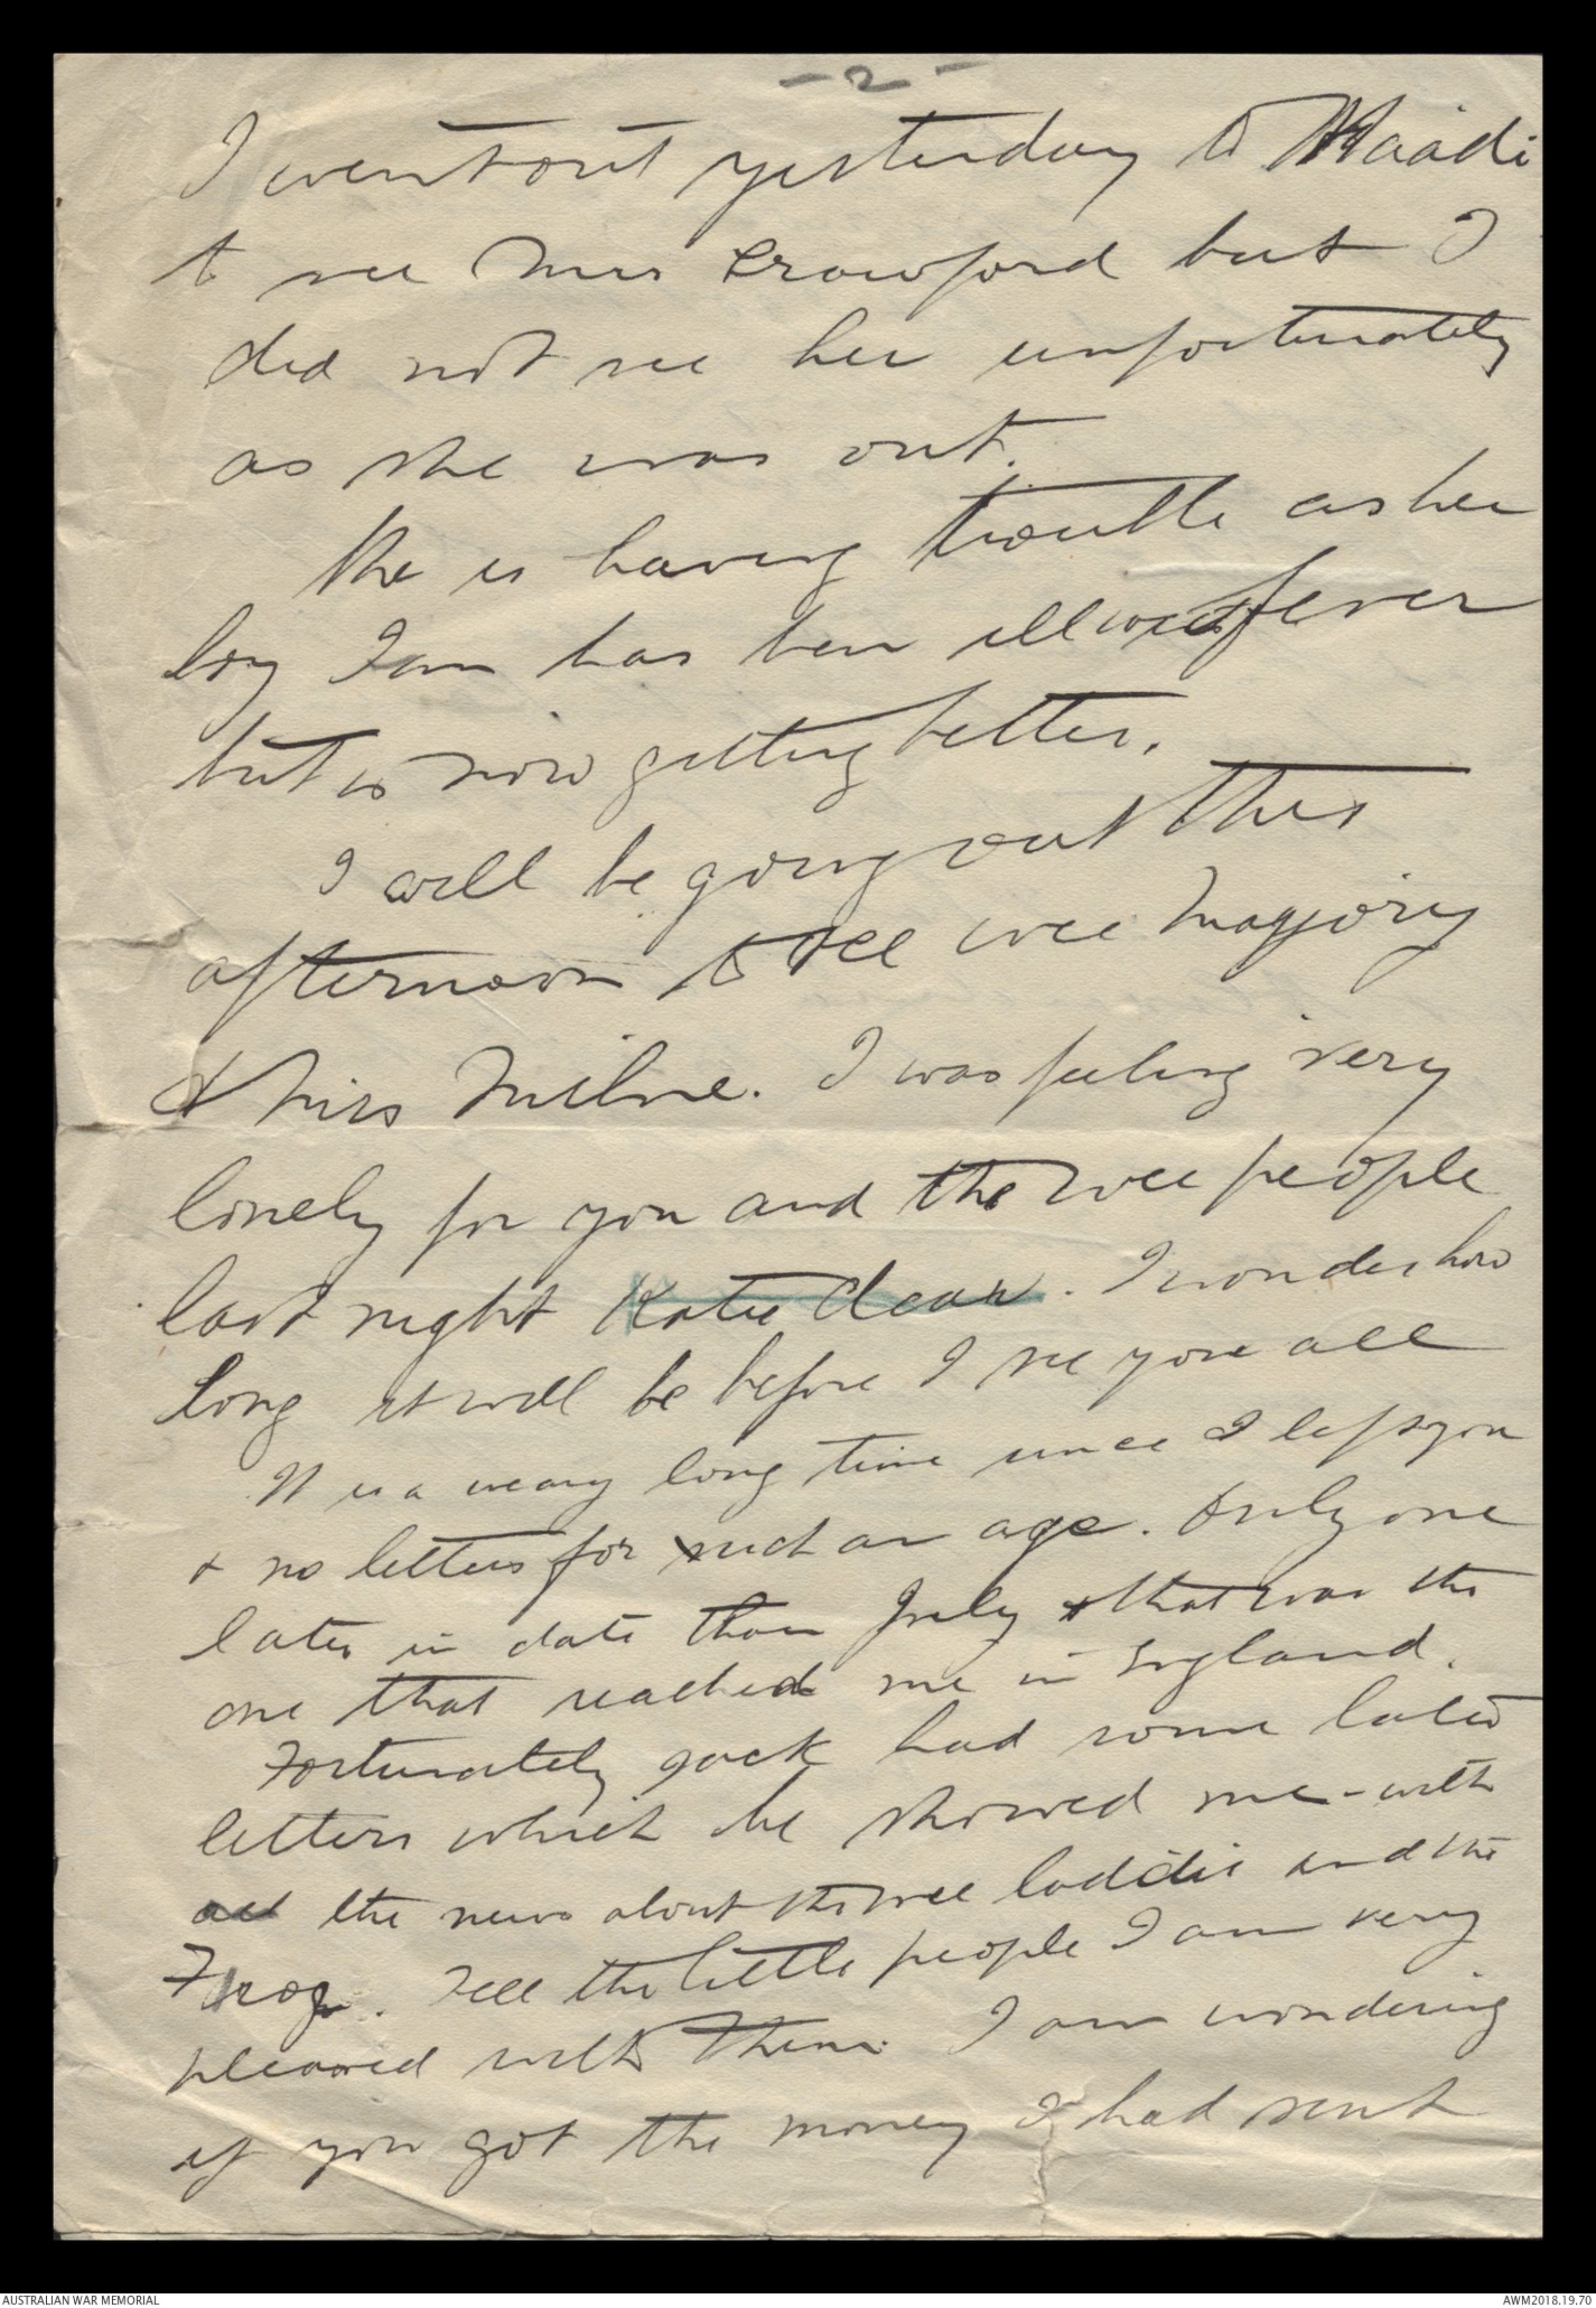 - 2 -
I went out yesterday to Maadi
to see Mrs Crawford but I
did not see her unfortunately
as she was out.
She is having trouble as her
boy Ian has been ill with fever
but is now getting better.
I will be going out this
afternoon to see wee Marjory
& Miss Milne. I was feeling very
lonely for you and the wee people
last night Katie dear. I wonder how
long it will be before I see you all
It is a weary long time since I left you
& no letters for such an age. Only one
later in date than July & that was the
one that reached me in England.
Fortunately Jack had some later
letters which he showed me - with
all the news about the wee laddie and the
Frog. Tell the little people I am very
pleased with them. I am wondering
if you got the money I had sent
AUSTRALIAN WAR MEMORIAL
AWM2018.19.70